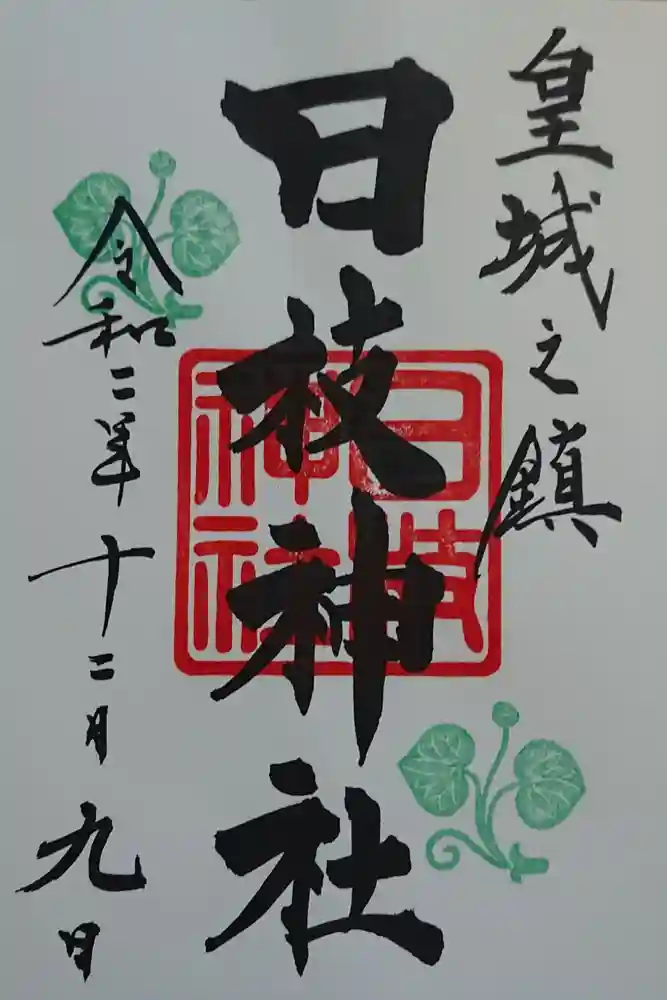 皇城之鎮
日枝神社
日枝
神社
令和二年十二月九日